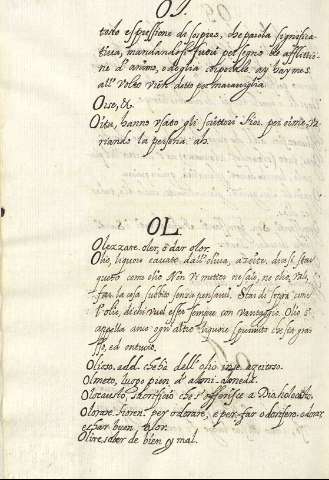 OI
tristo espressione di sospiro, che parola significa-
tiva, mandandosi fuori per segno de afflittio-
ne d'animo,
all' volto vien detto per maraviglia.
Oise, &.
Oita, hanno usato gli scrittori Fior. per oime, va-
riando la persona. ah.
OL
Olezzare. oler, ò dar olor.
Olio, liquore cavato dall' oliva, azeite. dicesi star
queto come olio. Non vi metter ne sale, ne olio, val,
far la cosa subbito senza pensarvi. Star di sopra come
l'olio, dichi vuol esser sempre con vantaggio. Olio s'
appella anco ogni altro liquore spremuto che sia gra-
sso, ed untuoso.
Olioso, add. che hà dell' olio in se. azeitoso.
Olmeto, luogo pien d' olmi. olmeda.
Olocausto, sacrificio che s' offerisce a Dio. holocausto.
Olorare. Fioren. per odorare, e per far odorifero. odorar,
echar buen olor.
Olire, saber de bien y mal.